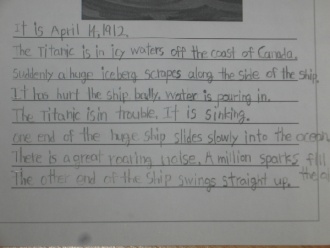 It is April 14, 1912.
The Titanic is in icy waters off the coast of Canada.
Suddenly a huge iceberg scrapes along the side of the ship.
It has hurt the ship badly. Water is pouring in.
The Titanic is in trouble. It is sinking.
one end of the huge ship slides slowly into the ocean.
There is a great roaring noise. A million sparks fill
the
The other end of the ship swings straight up.